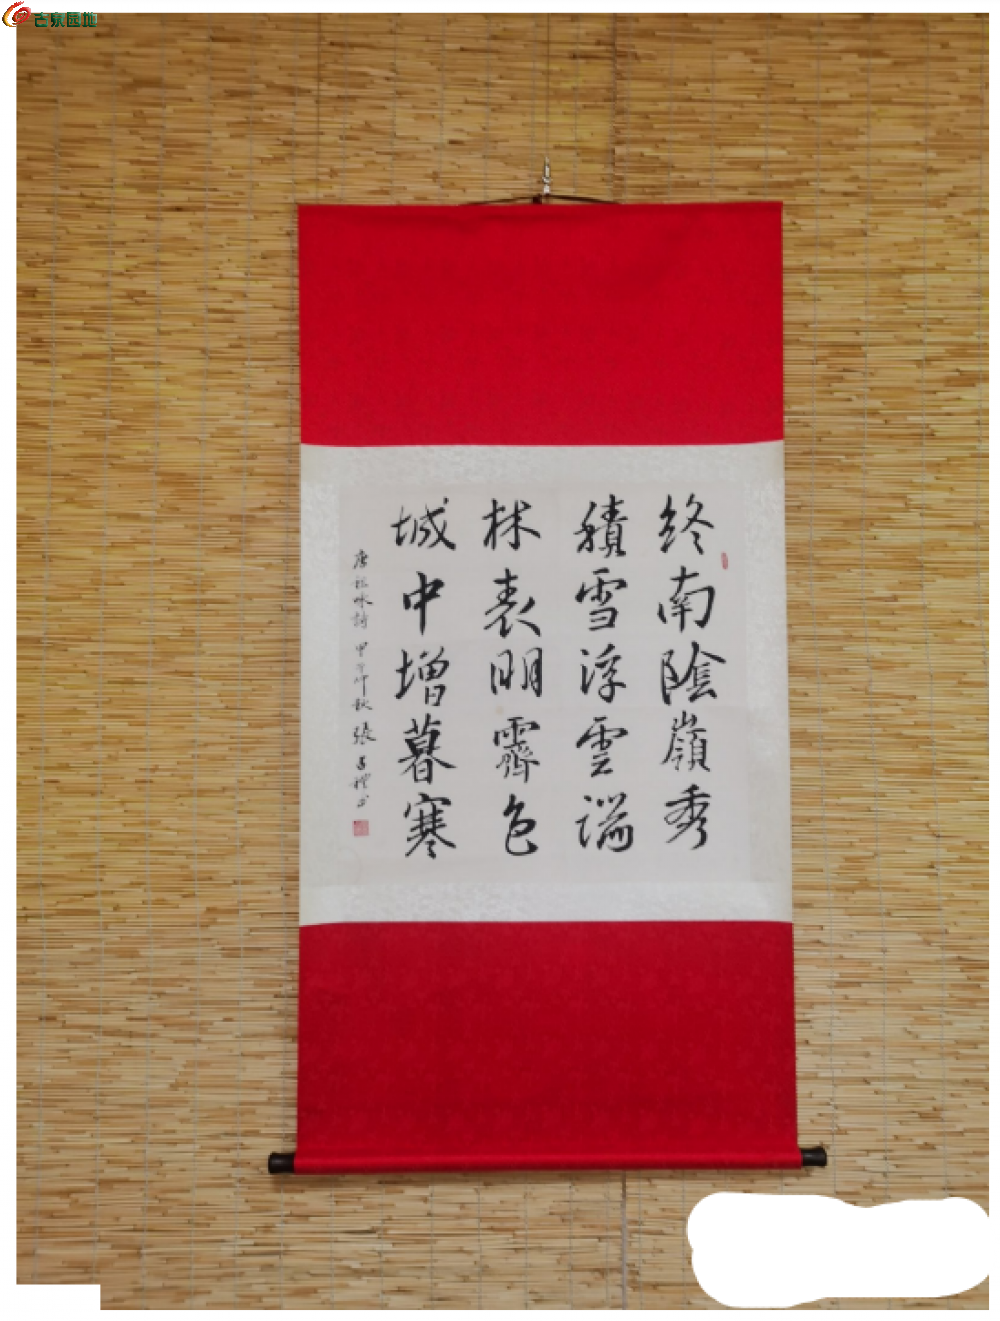 終南陰嶺秀
積雪浮雲端
林表明霽色
城中增暮寒
唐祖咏詩 甲午仲秋 張
古泉园地